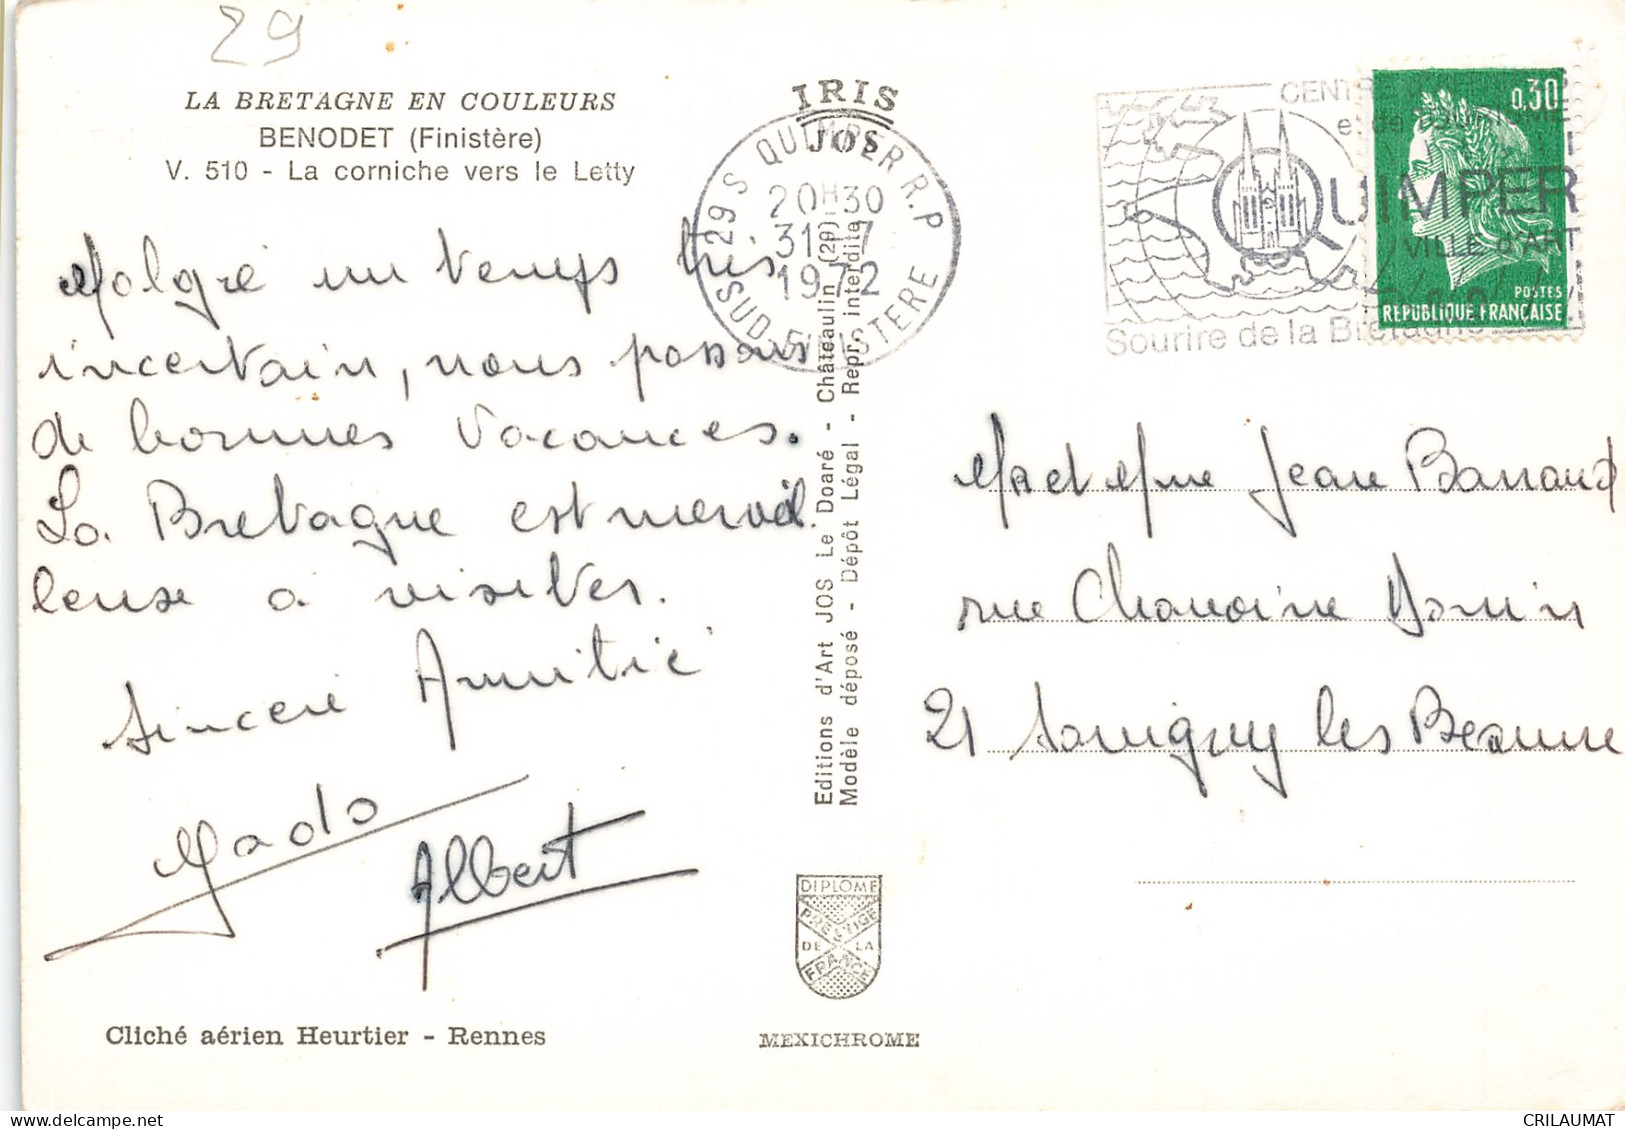 29
LA BRETAGNE EN COULEURS
BENODET (Finistère)
V. 510 - La corniche vers le Letty
Malgré un temps très
incertain, nous passons
de bonnes vacances.
La Bretagne est merveil
leuse a visiter.
Sincère Amitié
Mado
Albert
Cliché aérien Heurtier - Rennes
IRIS
JOS
29 S QUIMPER R.P
20H30
31 - 7
1972
SUD-FINISTERE
Editions d'Art JOS Le Doaré - Châteaulin (29)
Modèle déposé - Dépôt Légal - Repr. interdite
DIPLOME
PRESTIGE
DE LA
FRANCE
MEXICHROME
CENTRE
et de TOURISME
QUIMPER
VILLE d'ART
Sourire de la Bretagne
0,30
POSTES
REPUBLIQUE FRANÇAISE
M et Mme Jean Barraud
rue Chanoine Donin
21 Savigny les Beaune
CRILAUMAT